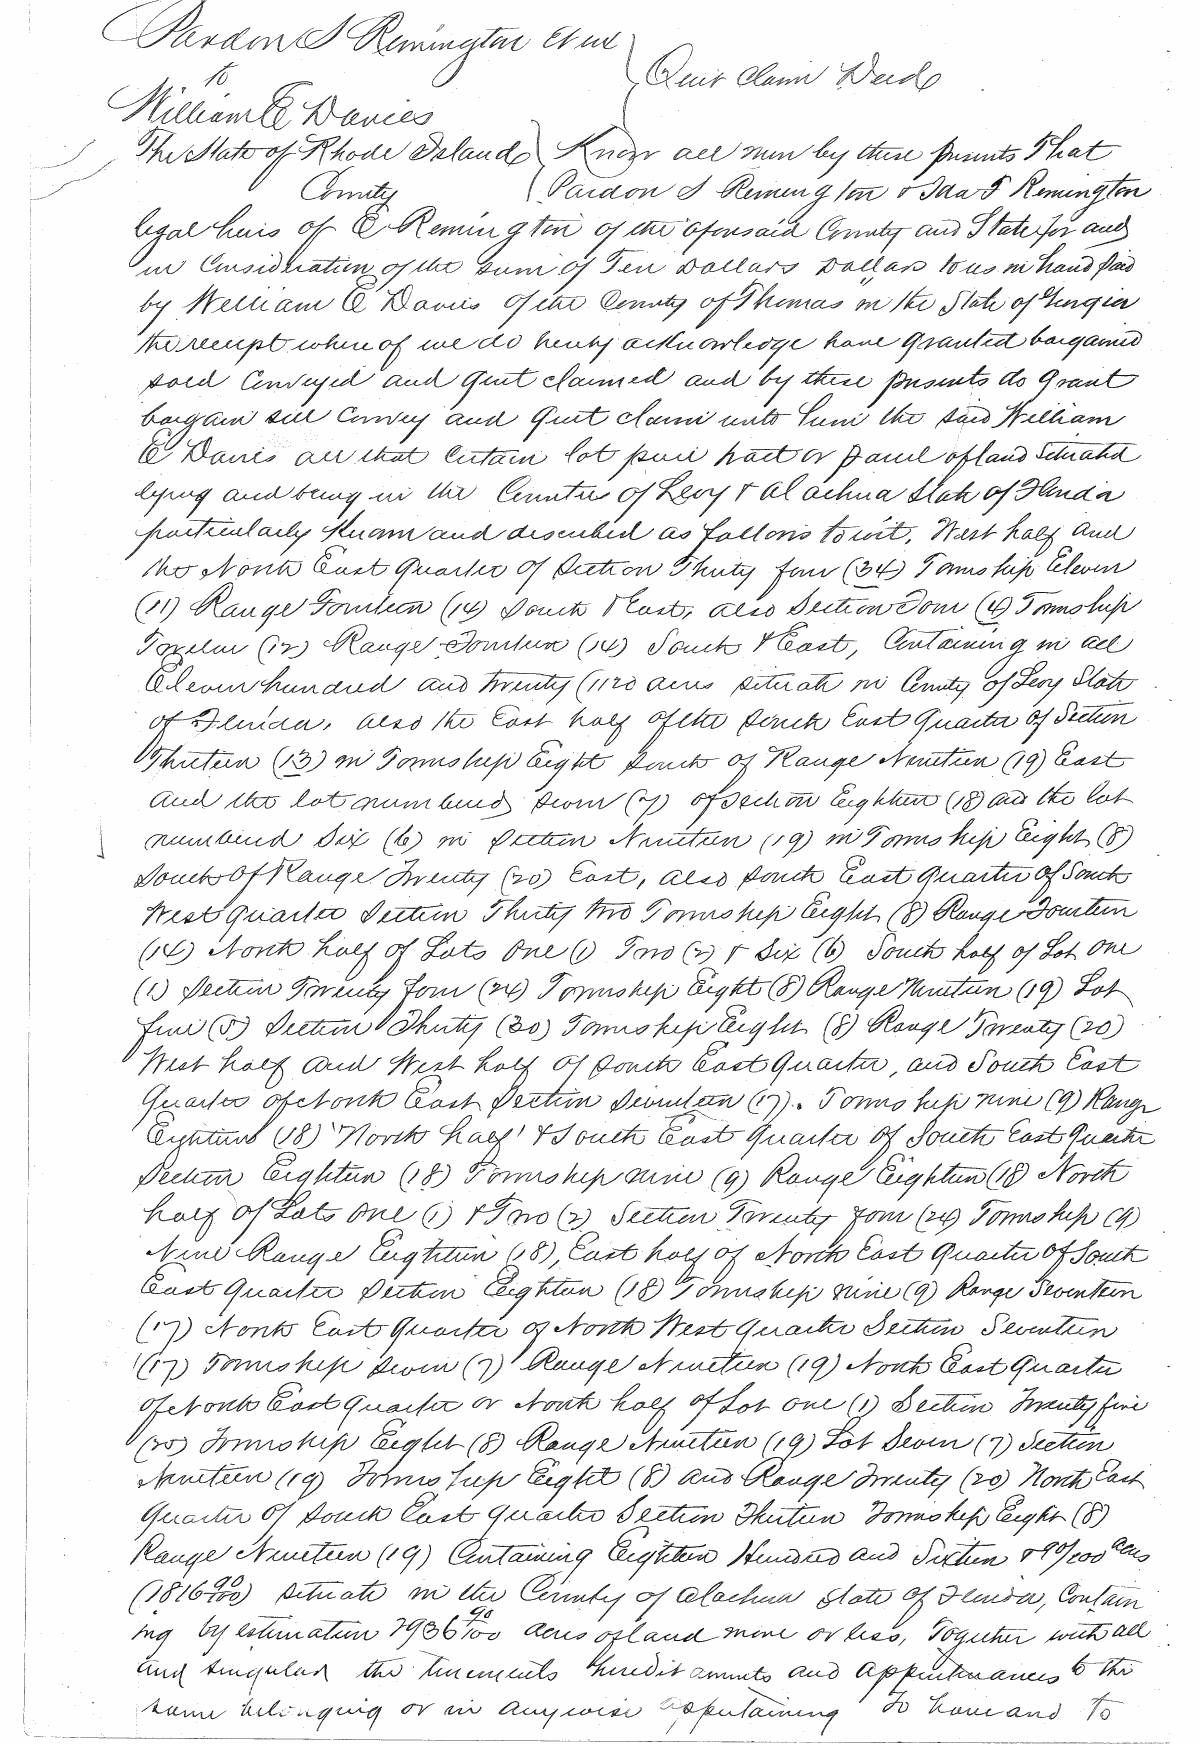 Pardon S Remington et ux
to
Quit Claim Deed
William E Davies
The State of Rhode Island
Know all men by these presents That
County
Pardon S Remington & Ida F Remington
legal heirs of E Remington of the aforesaid County and State for and
in Consideration of the sum of Ten Dollars Dollars to us in hand paid
by William E Davies of the County of Thomas in the State of Georgia
the receipt whereof we do hereby acknowledge have granted bargained
sold Conveyed and quit claimed and by these presents do grant
bargain sell Convey and quit claim unto him the said William
E Davies all that Certain lot piece part or parcel of land situated
lying and being in the Counties of Levy & Alachua State of Florida
particularly known and described as follows to wit, West half and
the North East Quarter of Section Thirty four (34) Township Eleven
(11) Range Fourteen (14) South & East, also Section Four (4) Township
Twelve (12) Range Fourteen (14) South & East, Containing in all
Eleven hundred and twenty (1120 acres situate in County of Levy State
of Florida, also the East half of the South East Quarter of Section
Thirteen (13) in Township Eight South of Range Nineteen (19) East
and the lot numbered Seven (7) of Section Eighteen (18) and the lot
numbered Six (6) in Section Nineteen (19) in Township Eight (8)
South of Range Twenty (20) East, also South East Quarter of South
West Quarter Section Thirty two Township Eight (8) Range Fourteen
(14) North half of Lots One (1) Two (2) & Six (6) South half of Lot One
(1) Section Twenty four (24) Township Eight (8) Range Nineteen (19) Lot
five (5) Section Thirty (30) Township Eight (8) Range Twenty (20)
West half and West half of South East Quarter, and South East
Quarter of North East Section Seventeen (17). Township nine (9) Range
Eighteen (18) North half & South East Quarter of South East Quarter
Section Eighteen (18) Township nine (9) Range Eighteen (18) North
half of Lots One (1) & Two (2) Section Twenty four (24) Township (9)
Nine Range Eighteen (18), East half of North East Quarter of South
East Quarter Section Eighteen (18) Township nine (9) Range Seventeen
(17) North East Quarter of North West Quarter Section Seventeen
(17) Township Seven (7) Range Nineteen (19) North East Quarter
of North East Quarter or North half of Lot one (1) Section Twenty five
(25) Township Eight (8) Range Nineteen (19) Lot Seven (7) Section
Nineteen (19) Township Eight (8) and Range Twenty (20) North East
Quarter of South East Quarter Section Thirteen Township Eight (8)
Range Nineteen (19) Containing Eighteen Hundred and Sixteen & 90/100 acres
(1816 90/100) situate in the County of Alachua State of Florida, Contain
ing by estimation 2936 90/100 acres of land more or less, Together with all
and singular the tenements heredit aments and appurtenances to the
same belonging or in anywise appertaining To have and to